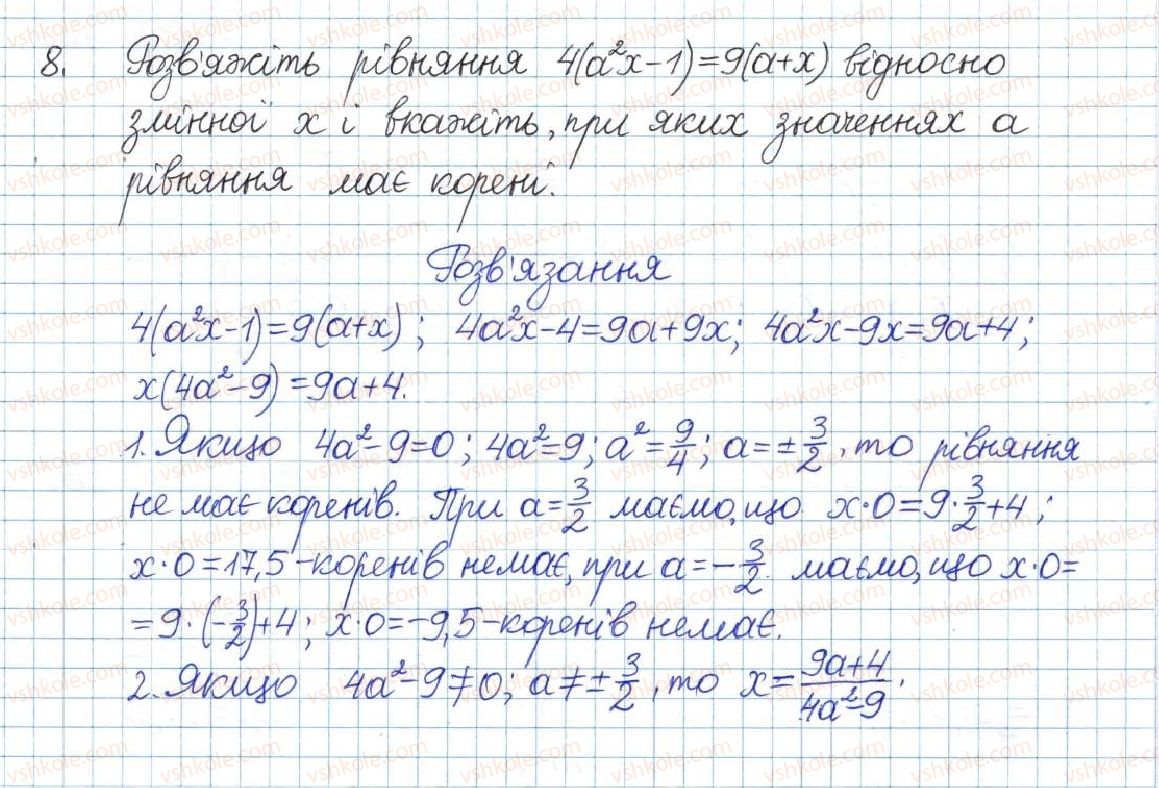 8. Розв'яжіть рівняння 4(a²x-1)=9(a+x) відносно
змінної x і вкажіть, при яких значеннях a
рівняння має корені.
Розв'язання
4(a²x-1)=9(a+x); 4a²x-4=9a+9x; 4a²x-9x=9a+4;
x(4a²-9)=9a+4.
1. Якщо 4a²-9=0; 4a²=9; a²=9/4; a=±3/2, то рівняння
не має коренів. При a=3/2 маємо, що x·0=9·3/2+4;
x·0=17,5-коренів немає, при a=-3/2 маємо, що x·0=
=9·(-3/2)+4; x·0=-9,5-коренів немає.
2. Якщо 4a²-9≠0; a≠±3/2, то x=(9a+4)/(4a²-9).
vshkole.com